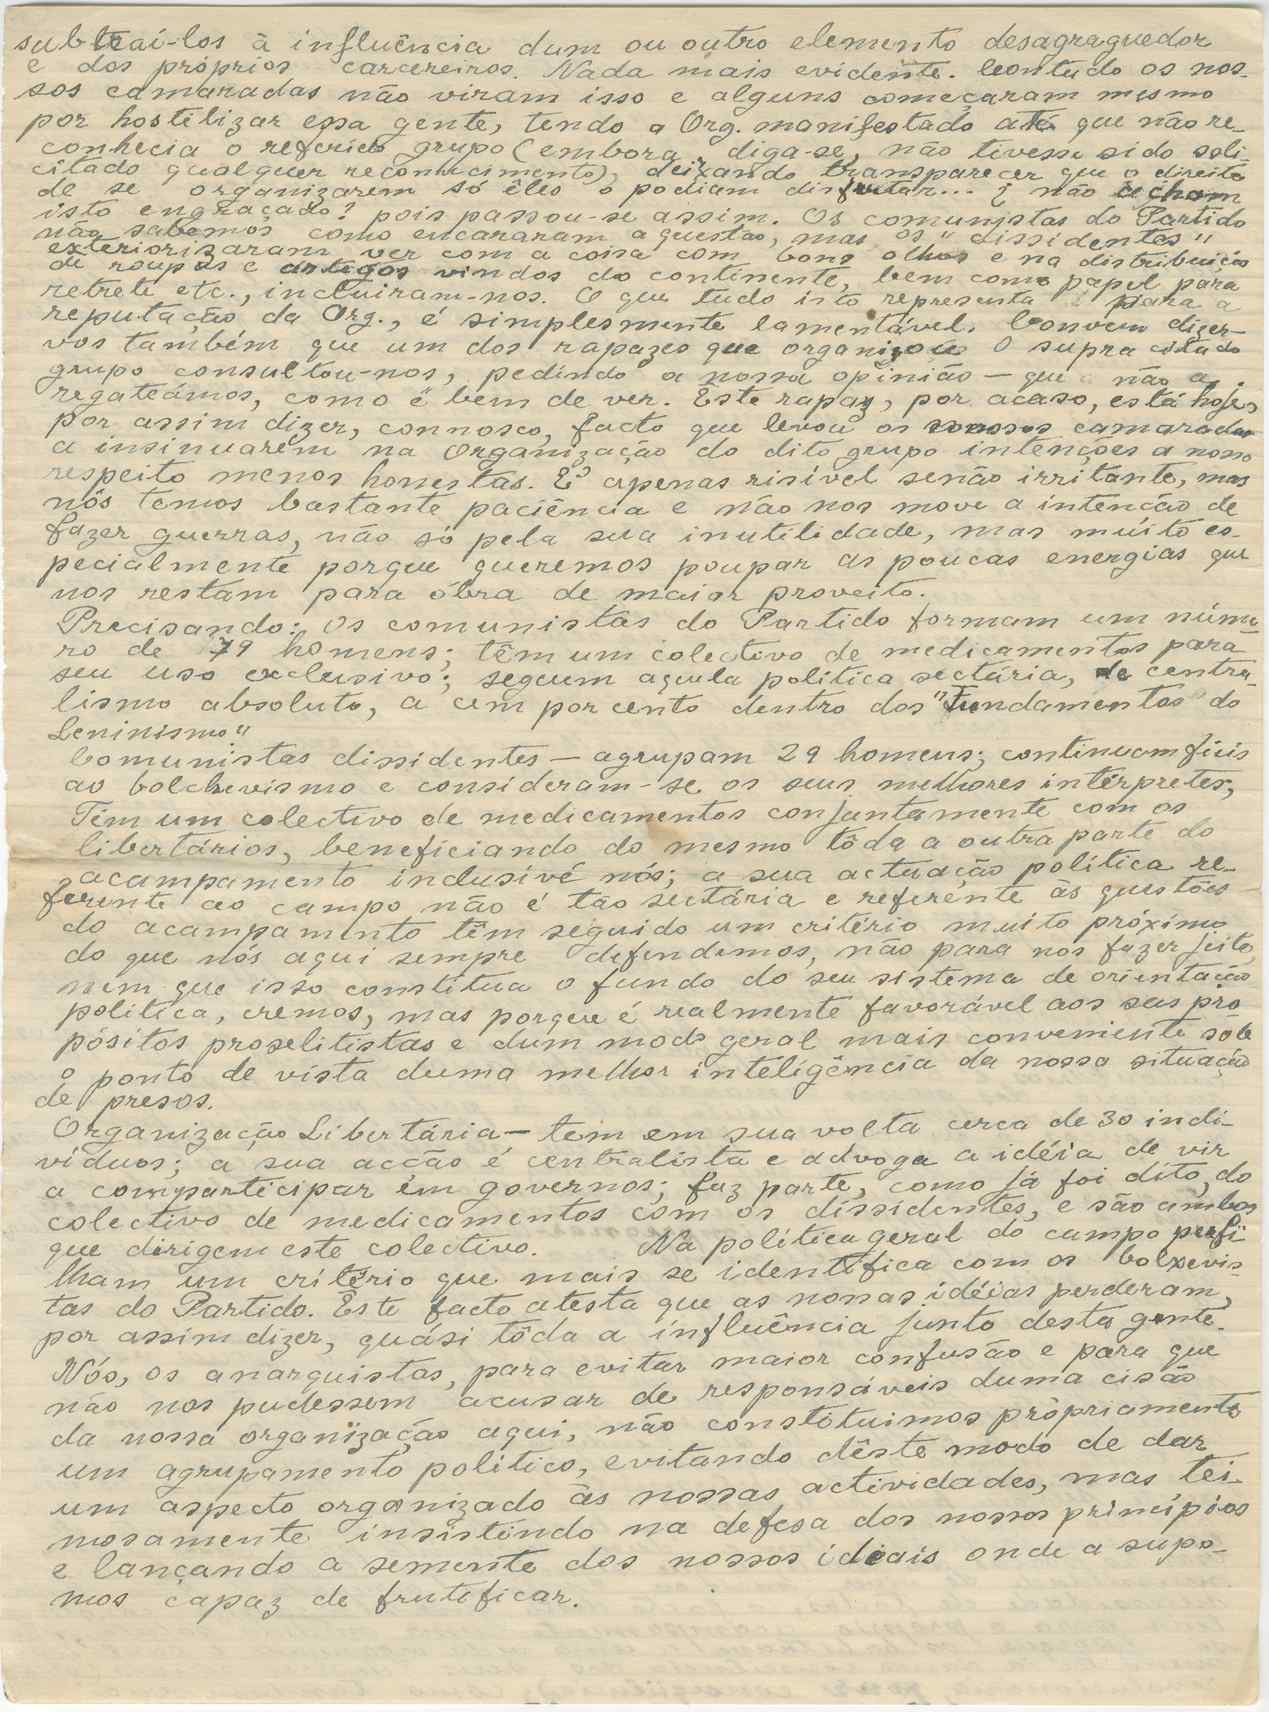 subtraí-los à influência dum ou outro elemento desagraguedor
e dos próprios carcereiros. Nada mais evidente. Contudo os nos-
sos camaradas não viram isso e alguns começaram mesmo
por hostilizar essa gente, tendo a Org. manifestado até que não re-
conhecia o referido grupo (embora, diga-se, não tivesse sido soli-
citado qualquer reconhecimento), deixando transparecer que o direito
de se organizarem só êles o podiam disfrutar... ¿ não acham
isto engraçado? pois passou-se assim. Os comunistas do Partido
não sabemos como encararam a questão, mas os "dissidentes"
exteriorizaram ver com a coisa com bons olhos e na distribuição
de roupas e artigos vindos do continente, bem como papel para
retrete etc., incluiram-nos. O que tudo isto representa para a
reputação da Org., é simplesmente lamentável. Convem dizer-
vos também que um dos rapazes que organizou o supra citado
grupo consultou-nos, pedindo a nossa opinião — que não a
regateámos, como é bem de ver. Este rapaz, por acaso, está hoje,
por assim dizer, connosco, facto que levou os nossos camaradas
a insinuarem na organização do dito grupo intenções a nosso
respeito menos honestas. E' apenas risível senão irritante, mas
nós temos bastante paciência e não nos move a intenção de
fazer guerras, não só pela sua inutilidade, mas muito es-
pecialmente porque queremos poupar as poucas energias que
nos restam para óbra de maior proveito.
Precisando: Os comunistas do Partido formam um núme-
ro de 79 homens; têm um colectivo de medicamentos para
seu uso exclusivo; seguem aquela política sectária, de centra-
lismo absoluto, a cem por cento dentro dos "Fundamentos do
Leninismo"
Comunistas dissidentes — agrupam 29 homens; continuam fiéis
ao bolchevismo e consideram-se os seus melhores intérpretes;
Têm um colectivo de medicamentos conjuntamente com os
libertários, beneficiando do mesmo tôda a outra parte do
acampamento inclusivé nós; a sua actuação política re-
ferente ao campo não é tão sectária e referente às questões
do acampamento têm seguido um critério muito próximo
do que nós aqui sempre defendemos, não para nos fazer jeito,
nem que isso constitua o fundo do seu sistema de orientação
política, cremos, mas porque é realmente favorável aos seus pro
pósitos proselitistas e dum modo geral mais conveniente sob
o ponto de vista duma melhor inteligência da nossa situação
de presos.
Organização Libertária — tem em sua volta cerca de 30 indi-
víduos; a sua acção é centralista e advoga a idéia de vir
a comparticipar em governos; faz parte, como já foi dito, do
colectivo de medicamentos com os dissidentes, e são ambos
que dirigem este colectivo. Na política geral do campo perfi
lham um critério que mais se identifica com os bolxevis-
tas do Partido. Este facto atesta que as nossas idéias perderam,
por assim dizer, quási tôda a influência junto desta gente.
Nós, os anarquistas, para evitar maior confusão e para que
não nos pudessem acusar de responsáveis duma cisão
da nossa organização aqui, não constituimos pròpriamente
um agrupamento político, evitando dêste modo de dar
um aspecto organizado às nossas actividades, mas tei-
mosamente insistindo na defesa dos nossos princípios
e lançando a semente dos nossos ideais onde a supo-
mos capaz de frutificar.